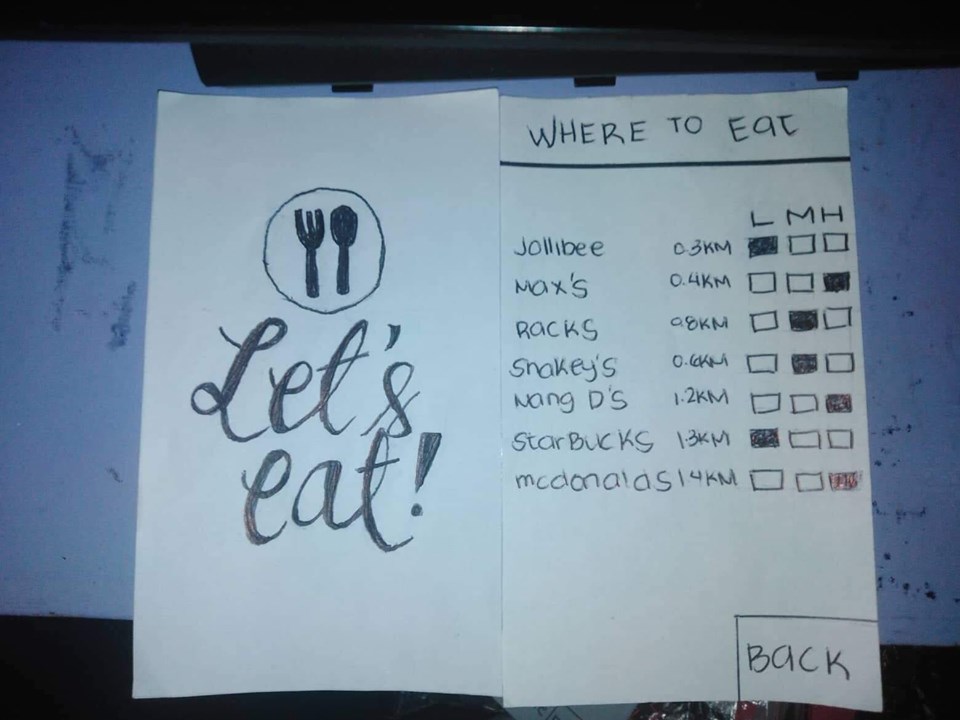 Let's
eat!
WHERE TO Eat
L M H
Jollibee 0.3KM
Max's 0.4KM
Racks 0.8KM
Shakey's
Nang D'S 1.2KM
StarBucks 1.3KM
mcdonalds 1.4KM
Back